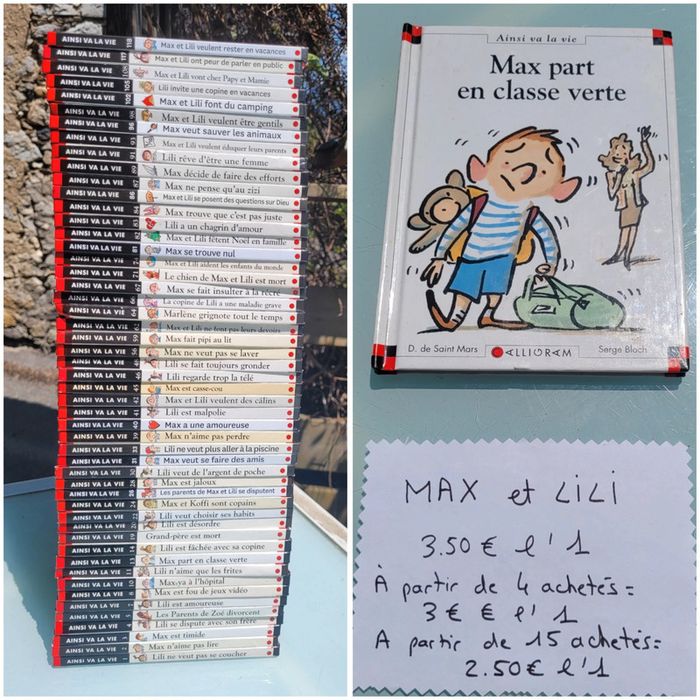 AINSI VA LA VIE 118 Max et Lili veulent rester en vacances
AINSI VA LA VIE 117 Max et Lili ont peur de parler en public
AINSI VA LA VIE Max et Lili vont chez Papy et Mamie
AINSI VA LA VIE 105 Lili invite une copine en vacances
AINSI VA LA VIE 102 Max et Lili font du camping
AINSI VA LA VIE 98 Max et Lili veulent être gentils
AINSI VA LA VIE 96 Max veut sauver les animaux
AINSI VA LA VIE 93 Max et Lili veulent éduquer leurs parents
AINSI VA LA VIE 91 Lili rêve d'être une femme
AINSI VA LA VIE 89 Max décide de faire des efforts
AINSI VA LA VIE 87 Max ne pense qu'au zizi
AINSI VA LA VIE 86 Max et Lili se posent des questions sur Dieu
AINSI VA LA VIE 84 Max trouve que c'est pas juste
AINSI VA LA VIE 83 Lili a un chagrin d'amour
AINSI VA LA VIE 82 Max et Lili fêtent Noël en famille
AINSI VA LA VIE 81 Max se trouve nul
AINSI VA LA VIE 74 Max et Lili aident les enfants du monde
AINSI VA LA VIE 71 Le chien de Max et Lili est mort
AINSI VA LA VIE 67 Max se fait insulter à la récré
AINSI VA LA VIE 66 La copine de Lili a une maladie grave
AINSI VA LA VIE 64 Marlène grignote tout le temps
AINSI VA LA VIE 62 Max et Lili ne font pas leurs devoirs
AINSI VA LA VIE 59 Max fait pipi au lit
AINSI VA LA VIE 56 Max ne veut pas se laver
AINSI VA LA VIE Lili se fait toujours gronder
AINSI VA LA VIE 46 Lili regarde trop la télé
AINSI VA LA VIE 45 Max est casse-cou
AINSI VA LA VIE 42 Max et Lili veulent des câlins
AINSI VA LA VIE 41 Lili est malpolie
AINSI VA LA VIE 40 Max a une amoureuse
AINSI VA LA VIE 39 Max n'aime pas perdre
AINSI VA LA VIE 33 Lili ne veut plus aller à la piscine
AINSI VA LA VIE 31 Max veut se faire des amis
AINSI VA LA VIE 30 Lili veut de l'argent de poche
AINSI VA LA VIE 28 Max est jaloux
AINSI VA LA VIE 26 Les parents de Max et Lili se disputent
AINSI VA LA VIE 24 Max et Koffi sont copains
AINSI VA LA VIE 22 Lili veut choisir ses habits
AINSI VA LA VIE 20 Lili est désordre
AINSI VA LA VIE 19 Grand-père est mort
AINSI VA LA VIE 14 Lili est fâchée avec sa copine
AINSI VA LA VIE 13 Max part en classe verte
AINSI VA LA VIE 11 Lili n'aime que les frites
AINSI VA LA VIE Max va à l'hôpital
AINSI VA LA VIE Max est fou de jeux vidéo
AINSI VA LA VIE Lili est amoureuse
AINSI VA LA VIE Les Parents de Zoé divorcent
AINSI VA LA VIE 4 Lili se dispute avec son frère
AINSI VA LA VIE 3 Max est timide
AINSI VA LA VIE 2 Max n'aime pas lire
AINSI VA LA VIE 1 Lili ne veut pas se coucher
Ainsi va la vie
Max part
en classe verte
D. de Saint Mars CALLIGRAM Serge Bloch
MAX et LILI
3.50 € l'1
À partir de 4 achetés =
3 € € l'1
A partir de 15 achetés =
2.50€ l'1